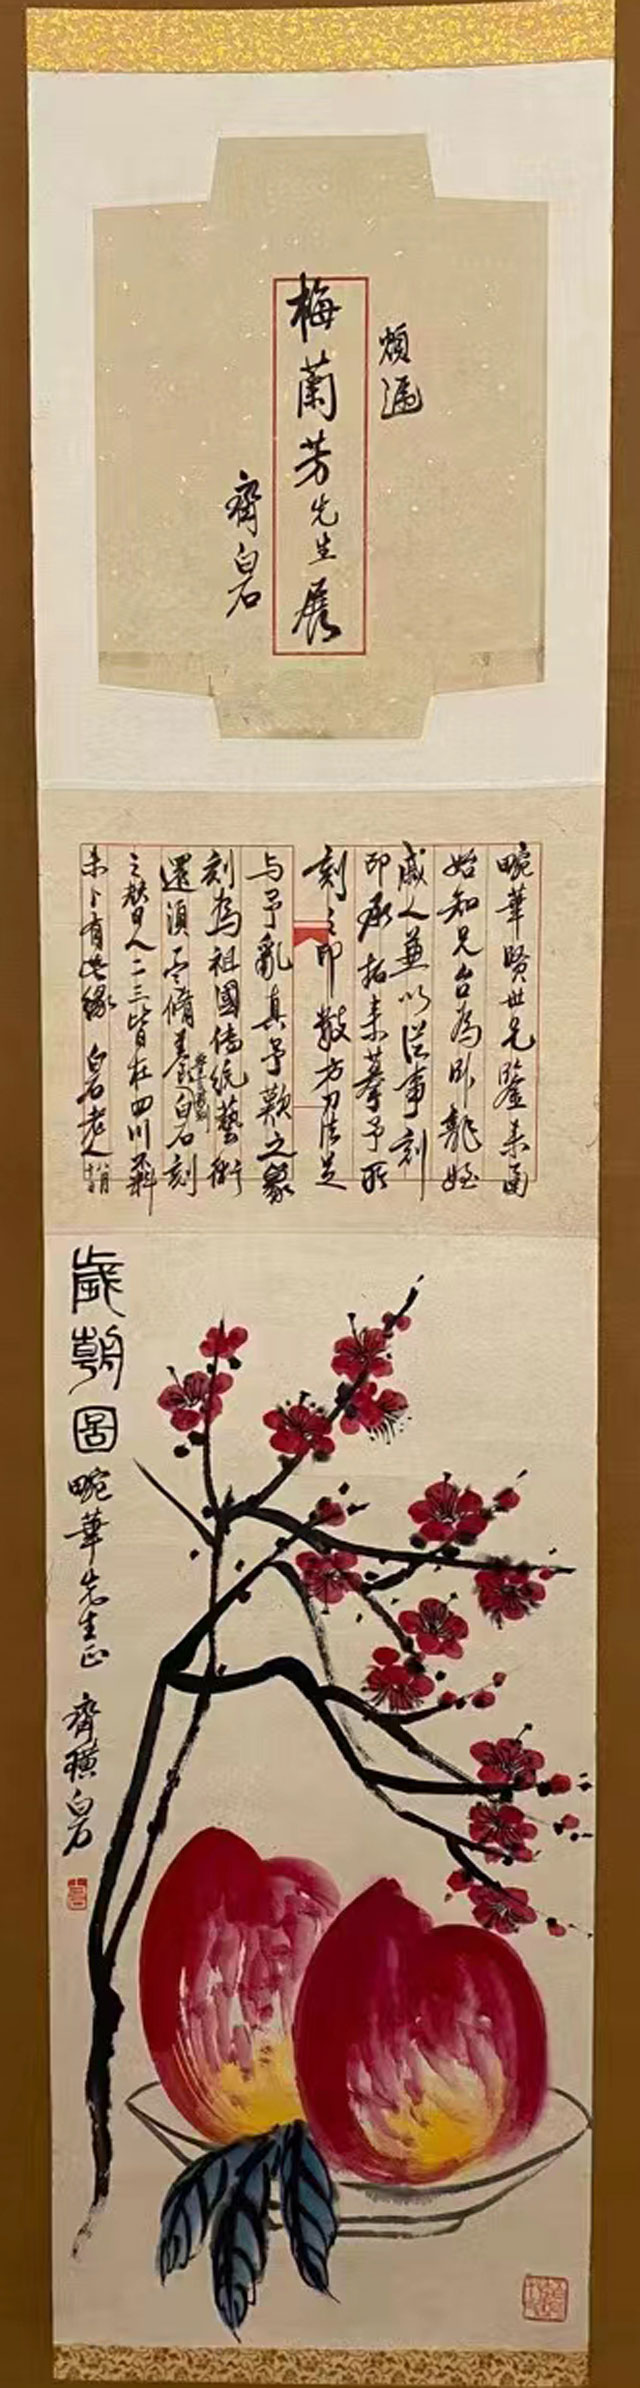 煩遞
梅蘭芳先生展
齊白石
畹華賢世兄鑒未面
始知兄台為卧龍姪
戚人兼以從事刻
印承拓来摹予所
刻之印數方刀法足
与予亂真予歎之篆
刻為祖國傳統藝術
還須修養白石刻
之教日人二三皆在四川
未卜有此緣 白石老人
歲朝圖
畹華先生正 齊璜白石